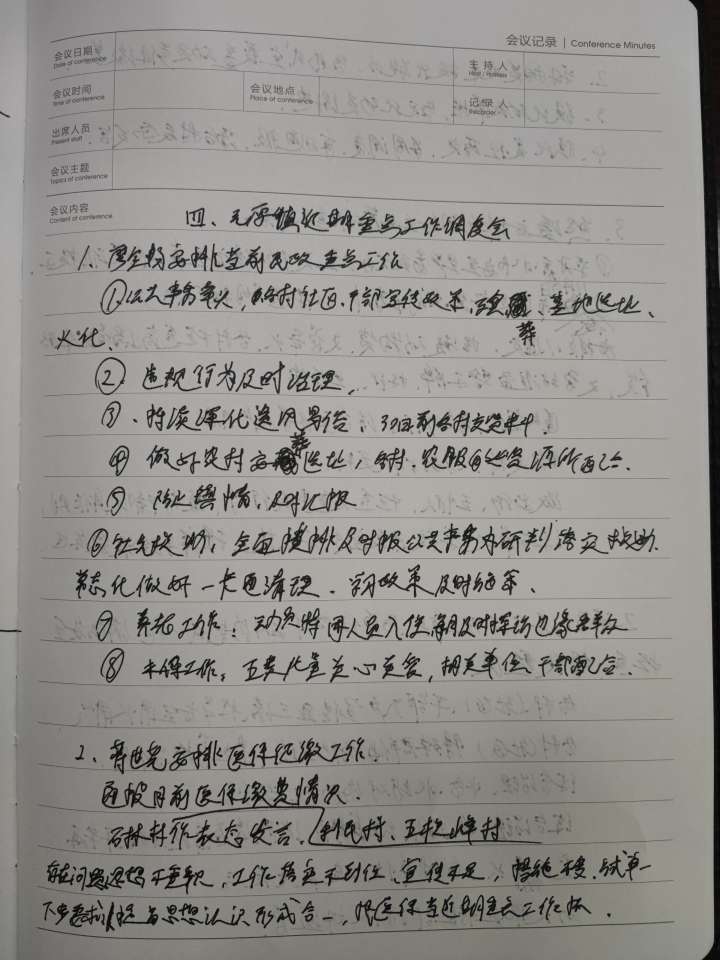 会议记录 | Conference Minutes
会议日期 Date of conference
主持人 Host / Hostess
会议时间 Time of conference
会议地点 Place of conference
记录人 Recorder
出席人员 Present staff
会议主题 Topics of conference
会议内容 Content of conference
四、元厚镇近期重点工作调度会
1、安排当前民政重点工作
①公共事务争火,各村社区、干部宣传政策、殡葬、墓地选址、
火化.
②违规行为及时治理,
③、持续深化移风易俗,30日前各村交资料.
④做好农村安葬选址,各村、农服自然资源所配合.
⑤防止舆情,及时汇报
⑥社会救助:全面摸排及时报公共事务办研判落实救助.
常态化做好一卡通清理.用政策及时
⑦养老工作:动员特困人员入住,及时探访边缘老年人
⑧未保工作:五类儿童关心关爱,相关单位、干部配合.
2、安排医保征缴工作.
通报目前医保缴费情况.
石林村作表态发言.利民村、五松峰村
存在问题思想不重视,工作落实不到位、宣传不足,措施单一
下步要求:提高思想认识形成合一,将医保当近期重点工作抓.